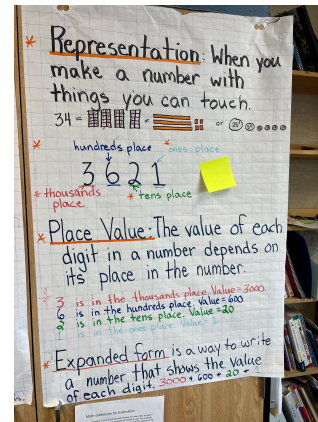 * Representation: When you
make a number with
things you can touch.
34 = = or 25¢
hundreds place
* ones place
3621
* thousands place
* tens place
* Place Value: The value of each
digit in a number depends on
its place in the number.
3 is in the thousands place. Value = 3000
6 is in the hundreds place. Value = 600
2 is in the tens place. Value = 20
1 is in the ones place. Value = 1
* Expanded form is a way to write
a number that shows the value
of each digit. 3000 + 600 + 20 + 1